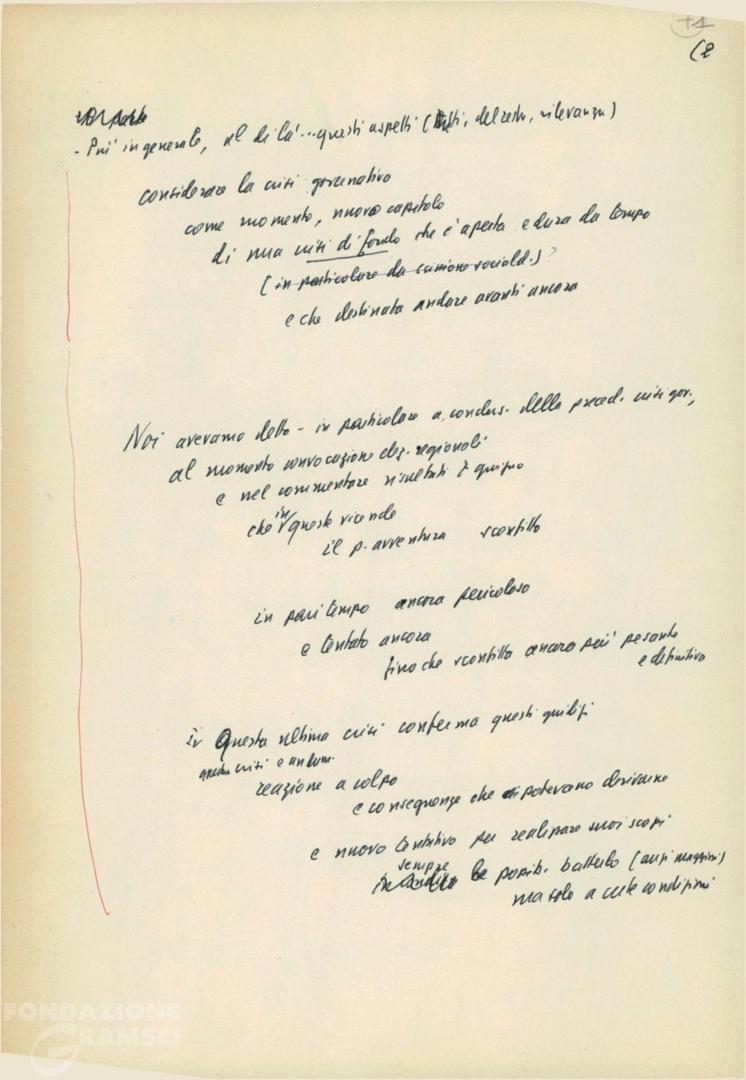 +1
(2
- Piu' in generale, al di la'... questi aspetti (tutti, del resto, rilevanti)
considerare la crisi governativa
come momento, nuovo capitolo
di una crisi di fondo che c'è aperta e dura da tempo
(in particolare da scissione socialdi.) ?
e che destinata andare avanti ancora
Noi avevamo detto - in particolare a conclus. della preced. crisi gov.,
al momento convocazione elez. regionali
e nel commentare risultati 7 giugno
che in queste vicende
il p. avventura sconfitto
in pari tempo ancora pericoloso
e tentato ancora
fino che sconfitto ancora più pesante
e definitivo
Questa ultima crisi conferma questi giudizi
questa crisi e
reazione a colpo
e conseguenze che potevano derivarne
e nuovo tentativo per realizzare suoi scopi
sempre
possib. batterlo (anzi maggiori)
ma solo a certe condizioni
FONDAZIONE
GRAMSCI